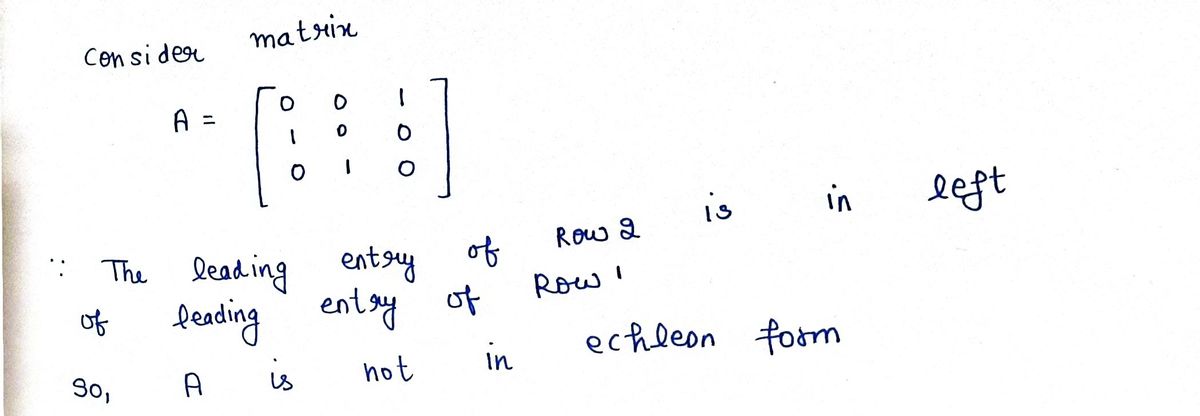 Consider matrix
A = [ 0 0 1
1 0 0
0 1 0 ]
∵ The leading entry of Row 2 is in left
of leading entry of Row 1
So, A is not in echleon form